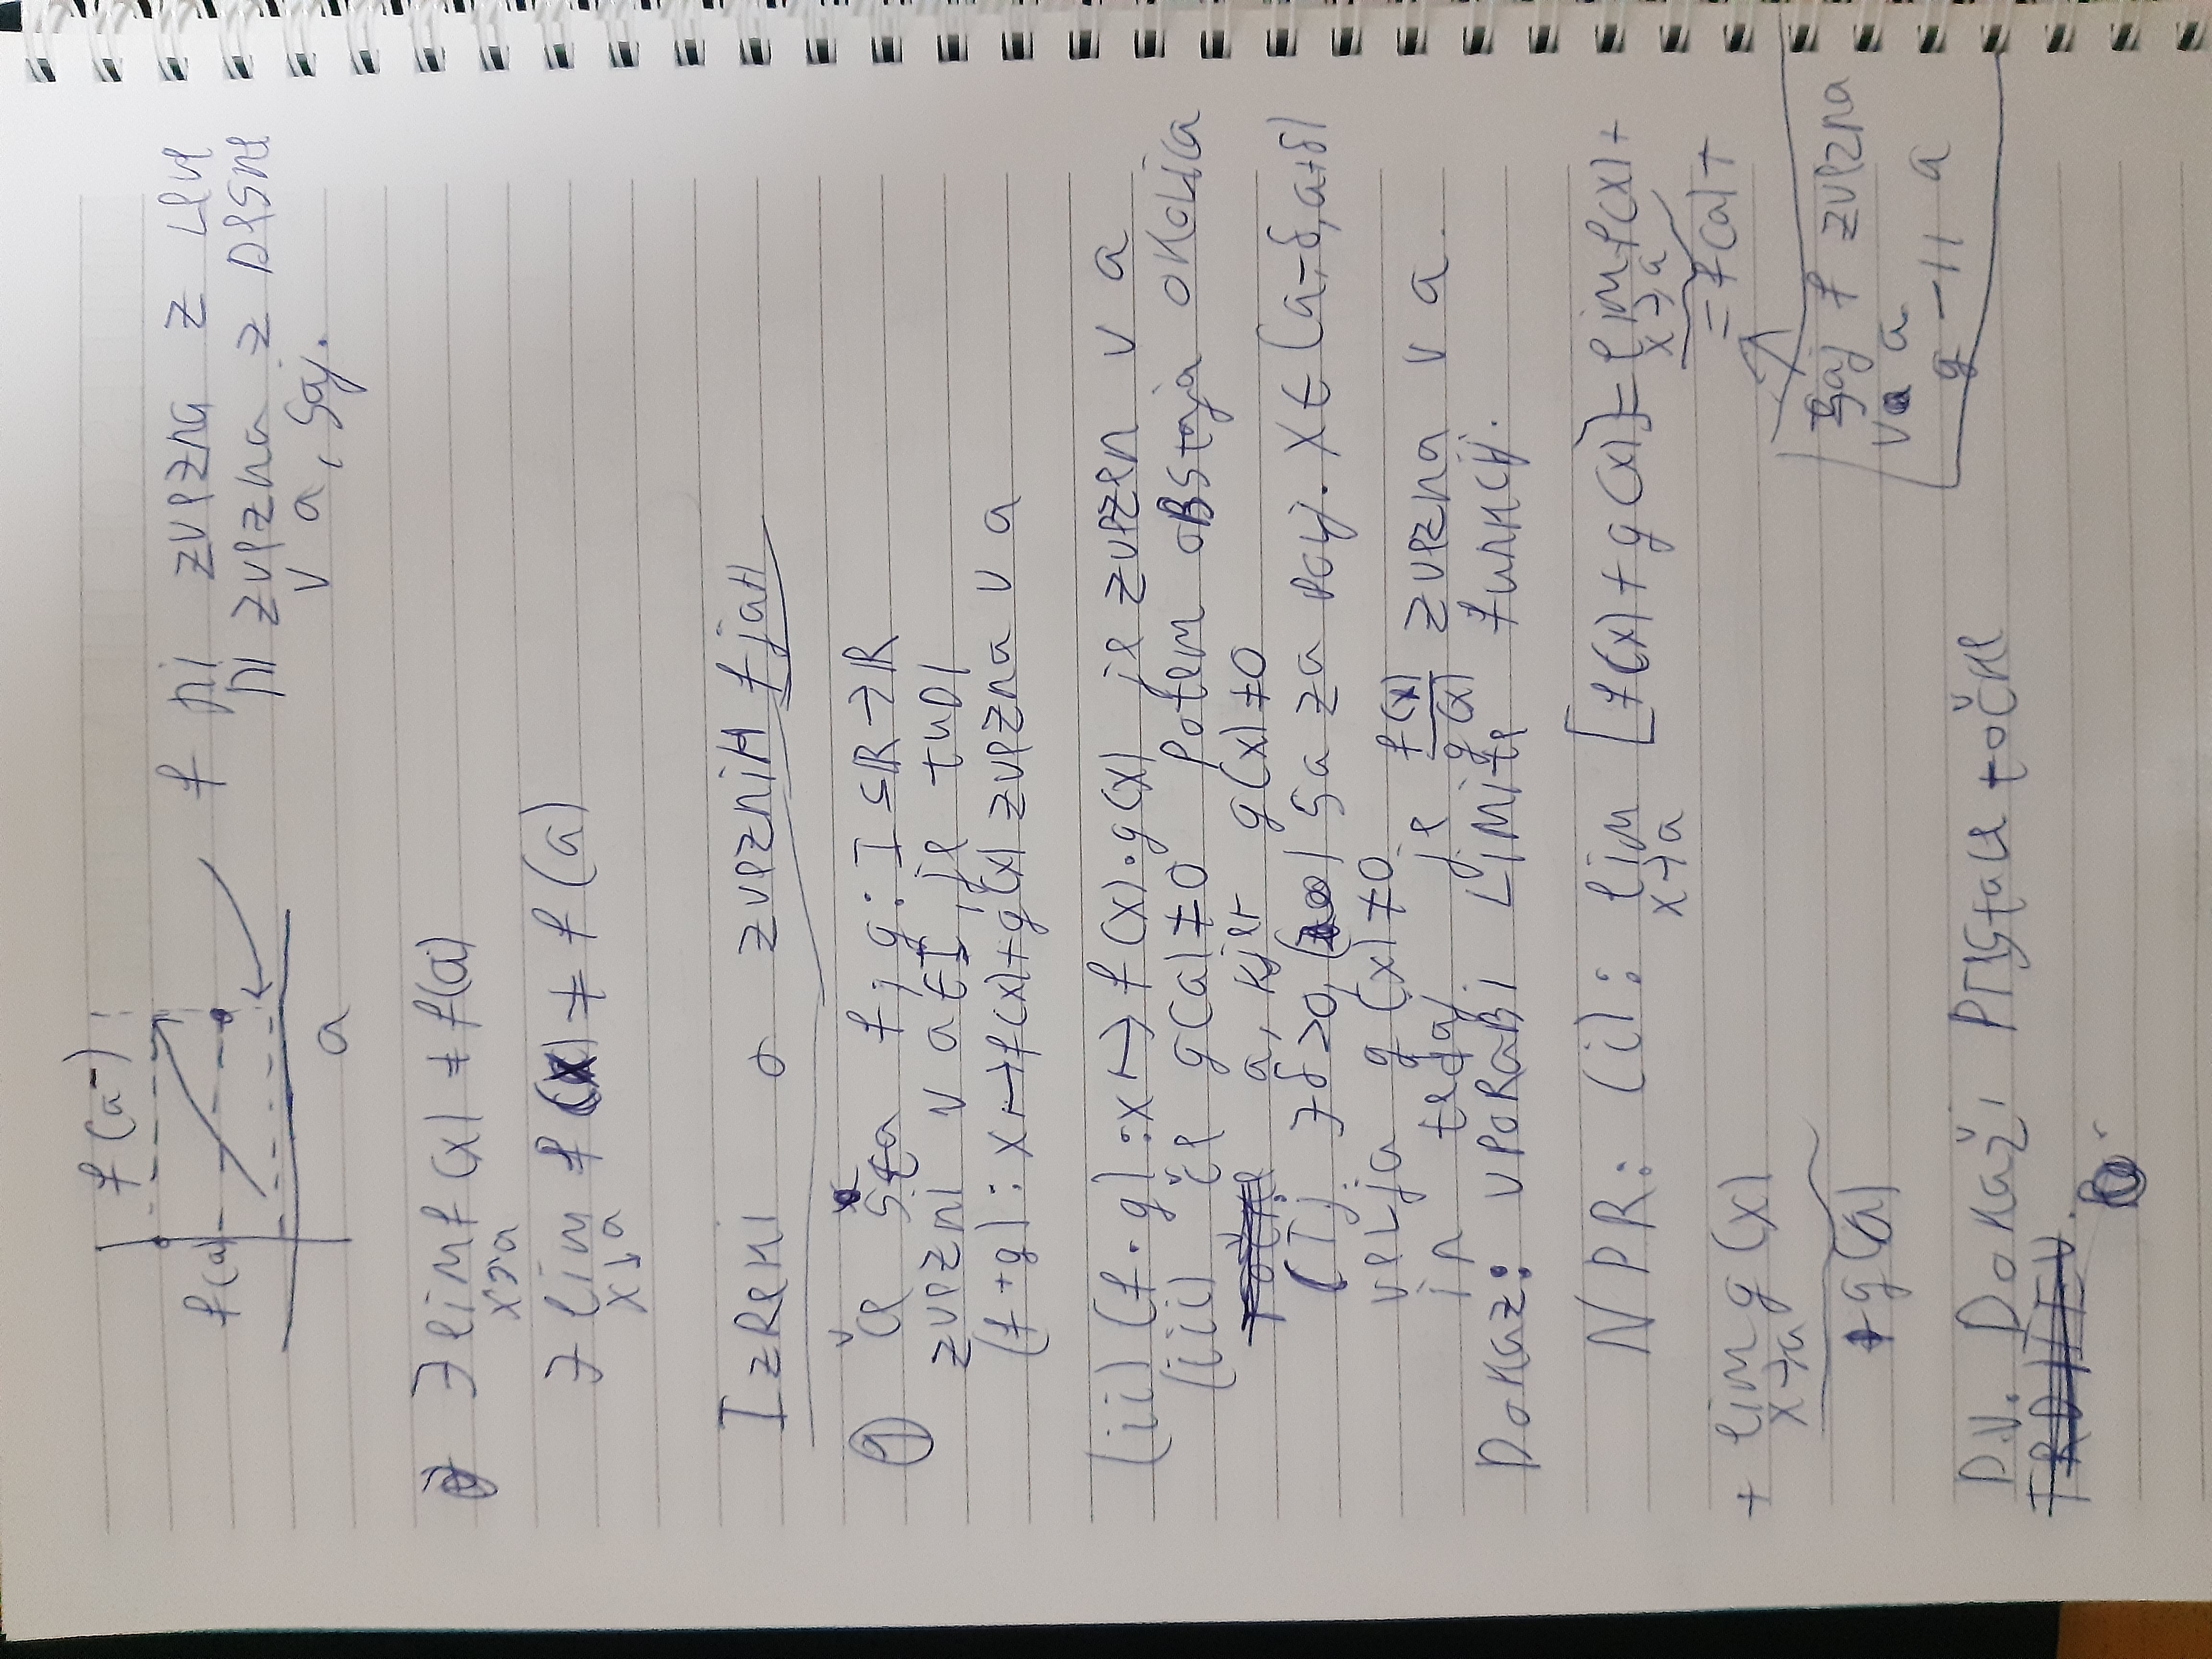 f(a⁻)
f(a)
a
f ni zvezna z leve
ni zvezna z desne
v a, saj.
∃ lim f(x) ≠ f(a)
x↗a
∃ lim f(x) ≠ f(a)
x↓a
Izreki o zveznih fjah
Če sta f, g: I ⊆ ℝ → ℝ
zvezni v a ∈ I, je tudi
(f+g): x ↦ f(x)+g(x) zvezna v a
(ii) (f·g): x ↦ f(x)·g(x) je zvezen v a
(iii) če g(a) ≠ 0 potem obstaja okolica
točke a, kjer g(x) ≠ 0
(Tj. ∃δ>0, da za x ∈ (a-δ, a+δ)
velja g(x) ≠ 0
in tedaj je f(x)/g(x) zvezna v a.
Dokaz: uporabi limite funkcij.
NPR: (i): lim [f(x)+g(x)] = lim f(x) +
x→a x→a
= f(a) +
+ lim g(x)
x→a
+g(a)
saj f zvezna
v a
g -||- a
D.N. Dokaži preostale točke
TRDITEV.